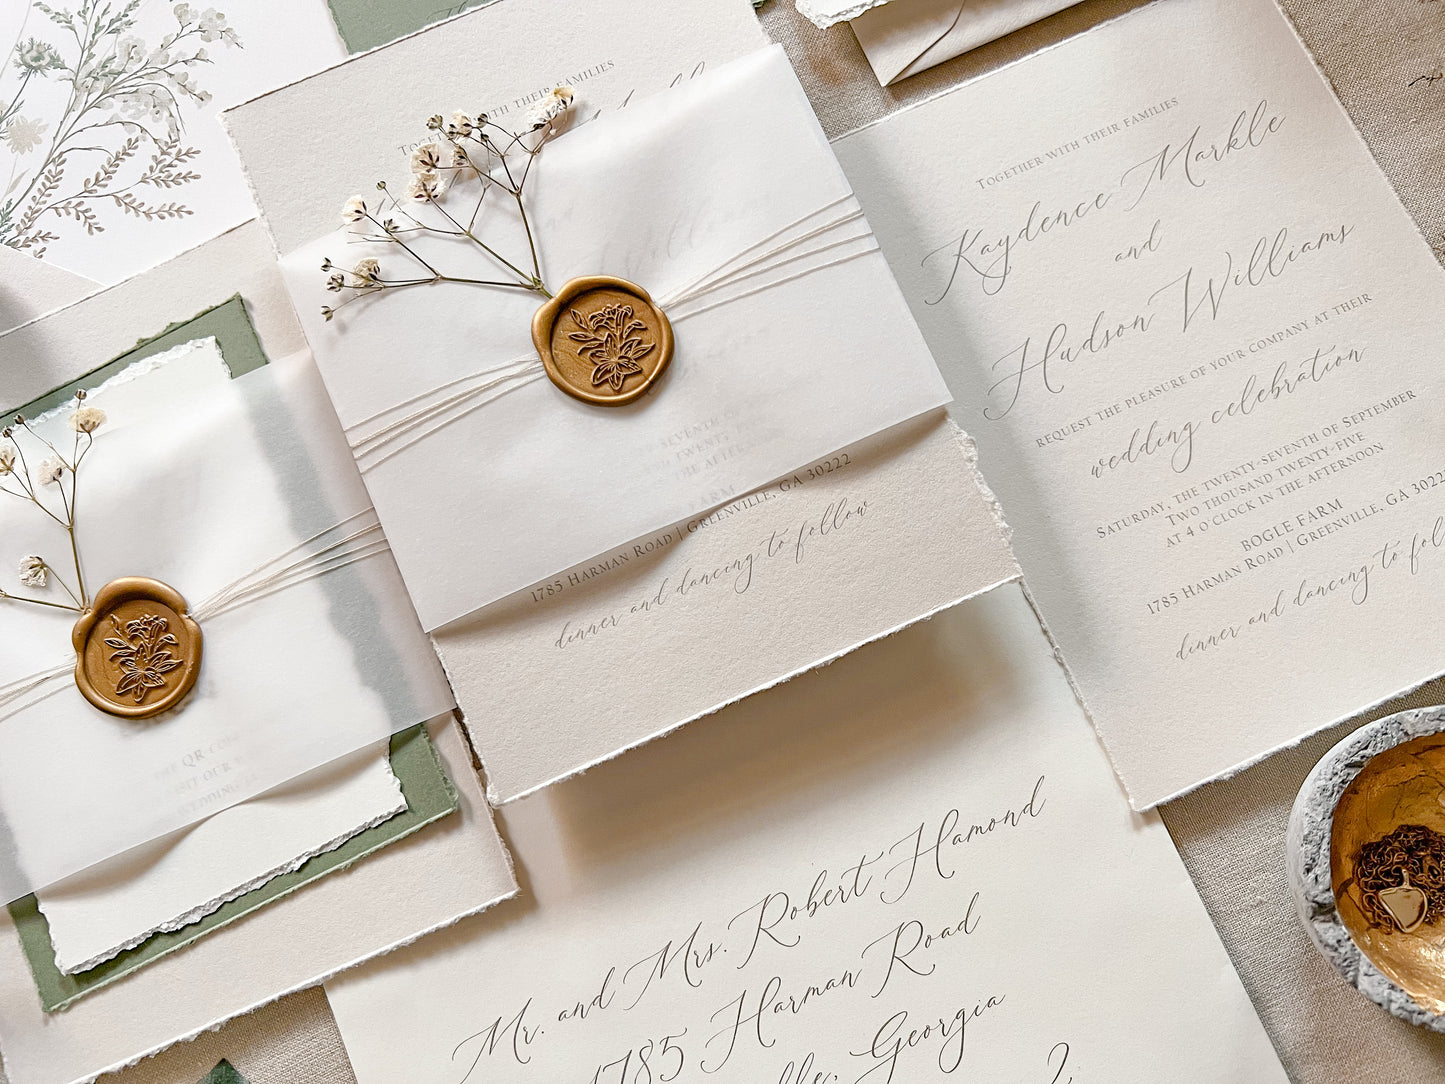 Together with their families
1785 Harman Road | Greenville, GA 30222
dinner and dancing to follow
Together with their families
Kaydence Markle
and
Hudson Williams
request the pleasure of your company at their
wedding celebration
Saturday, the twenty-seventh of September
Two thousand twenty-five
at 4 o'clock in the afternoon
BOGLE FARM
1785 Harman Road | Greenville, GA
dinner and dancing to
Mr. and Mrs. Robert Hamond
1785 Harman Road
Georgia